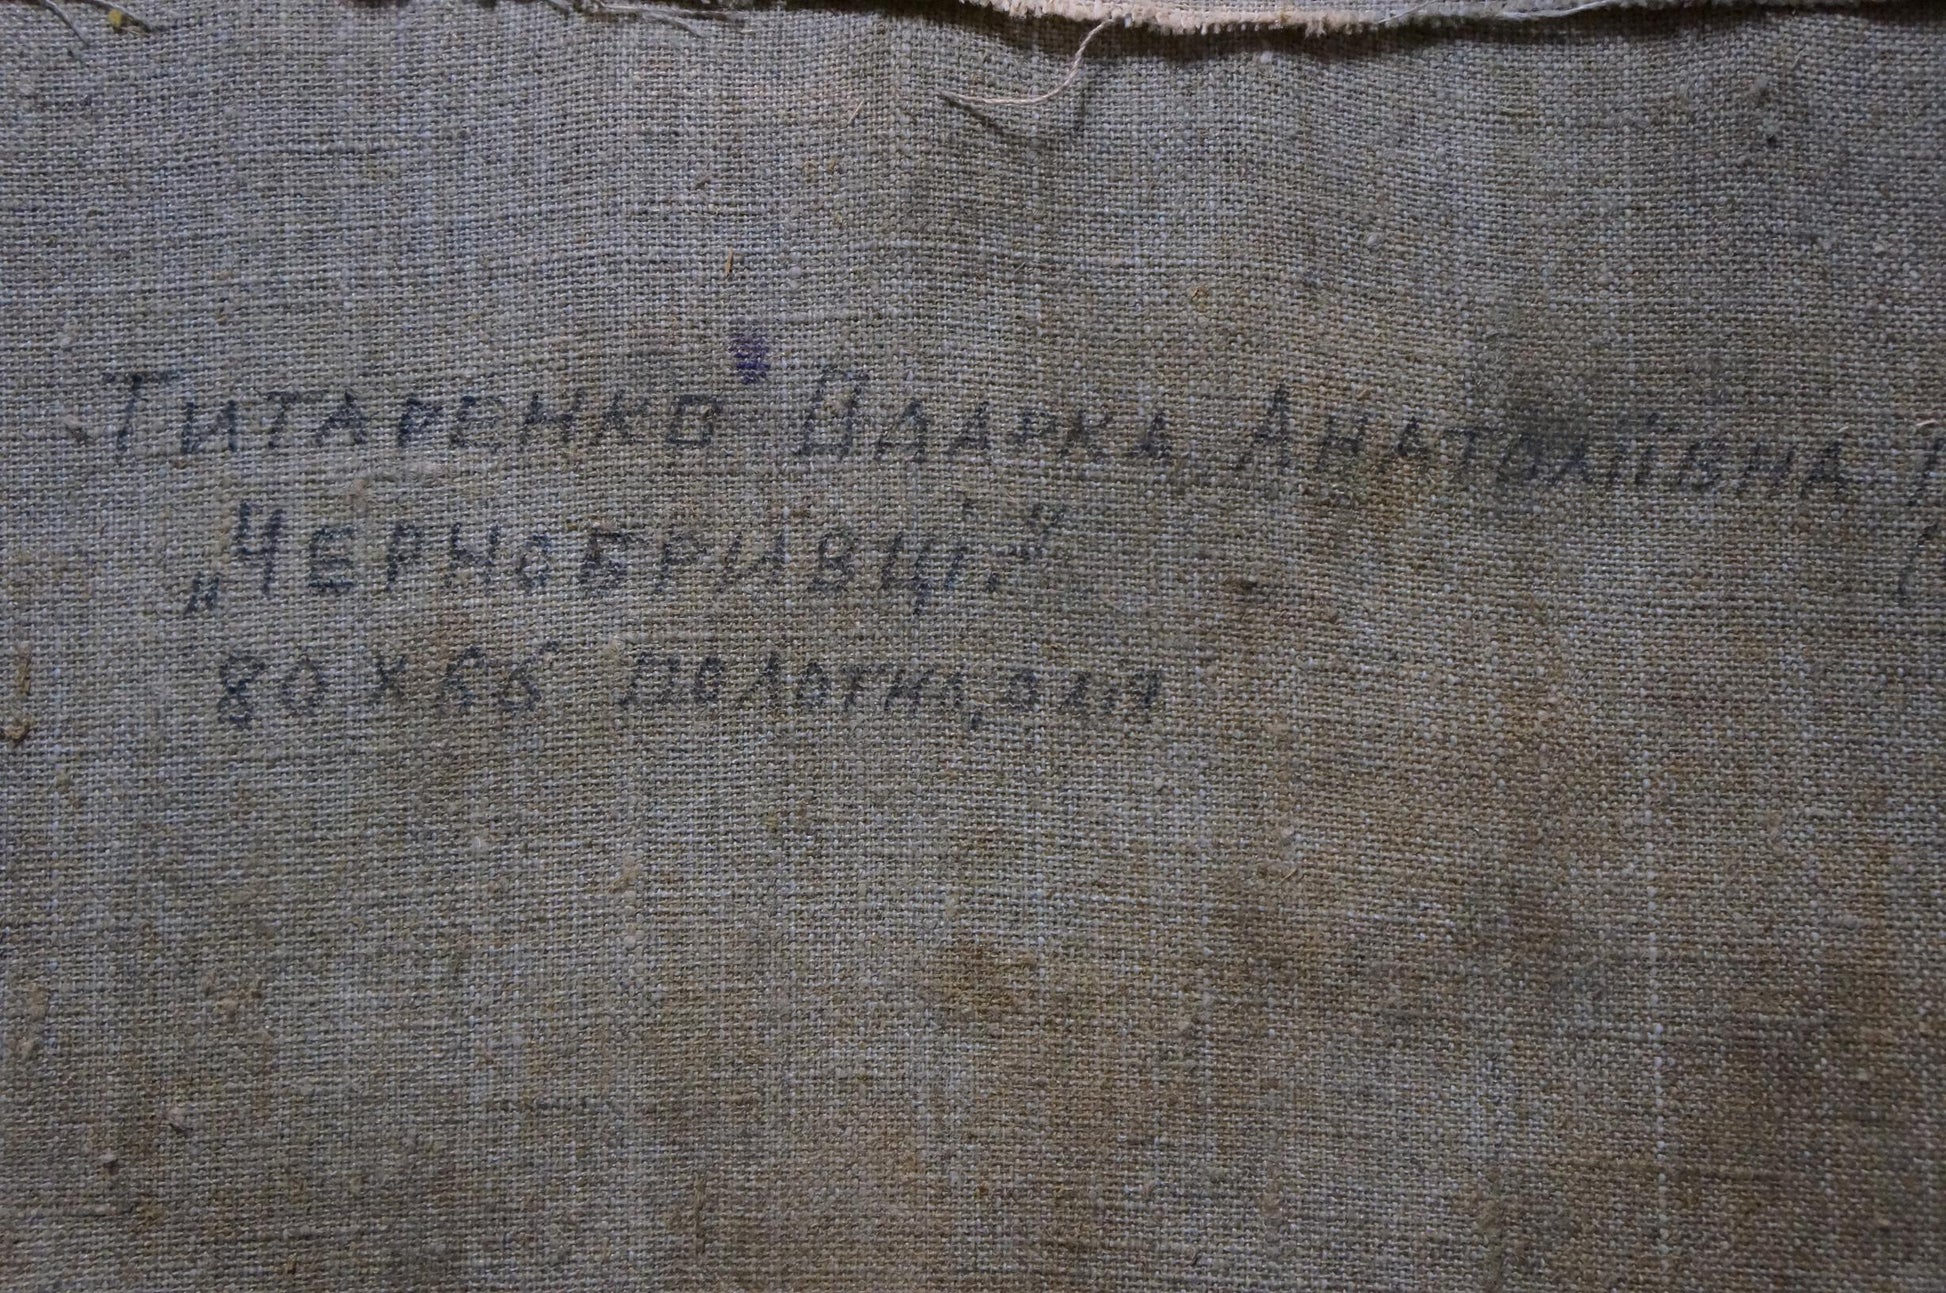 Титаренко Одарка Анатоліївна
„Чернобривці."
80х65 полотно, олія